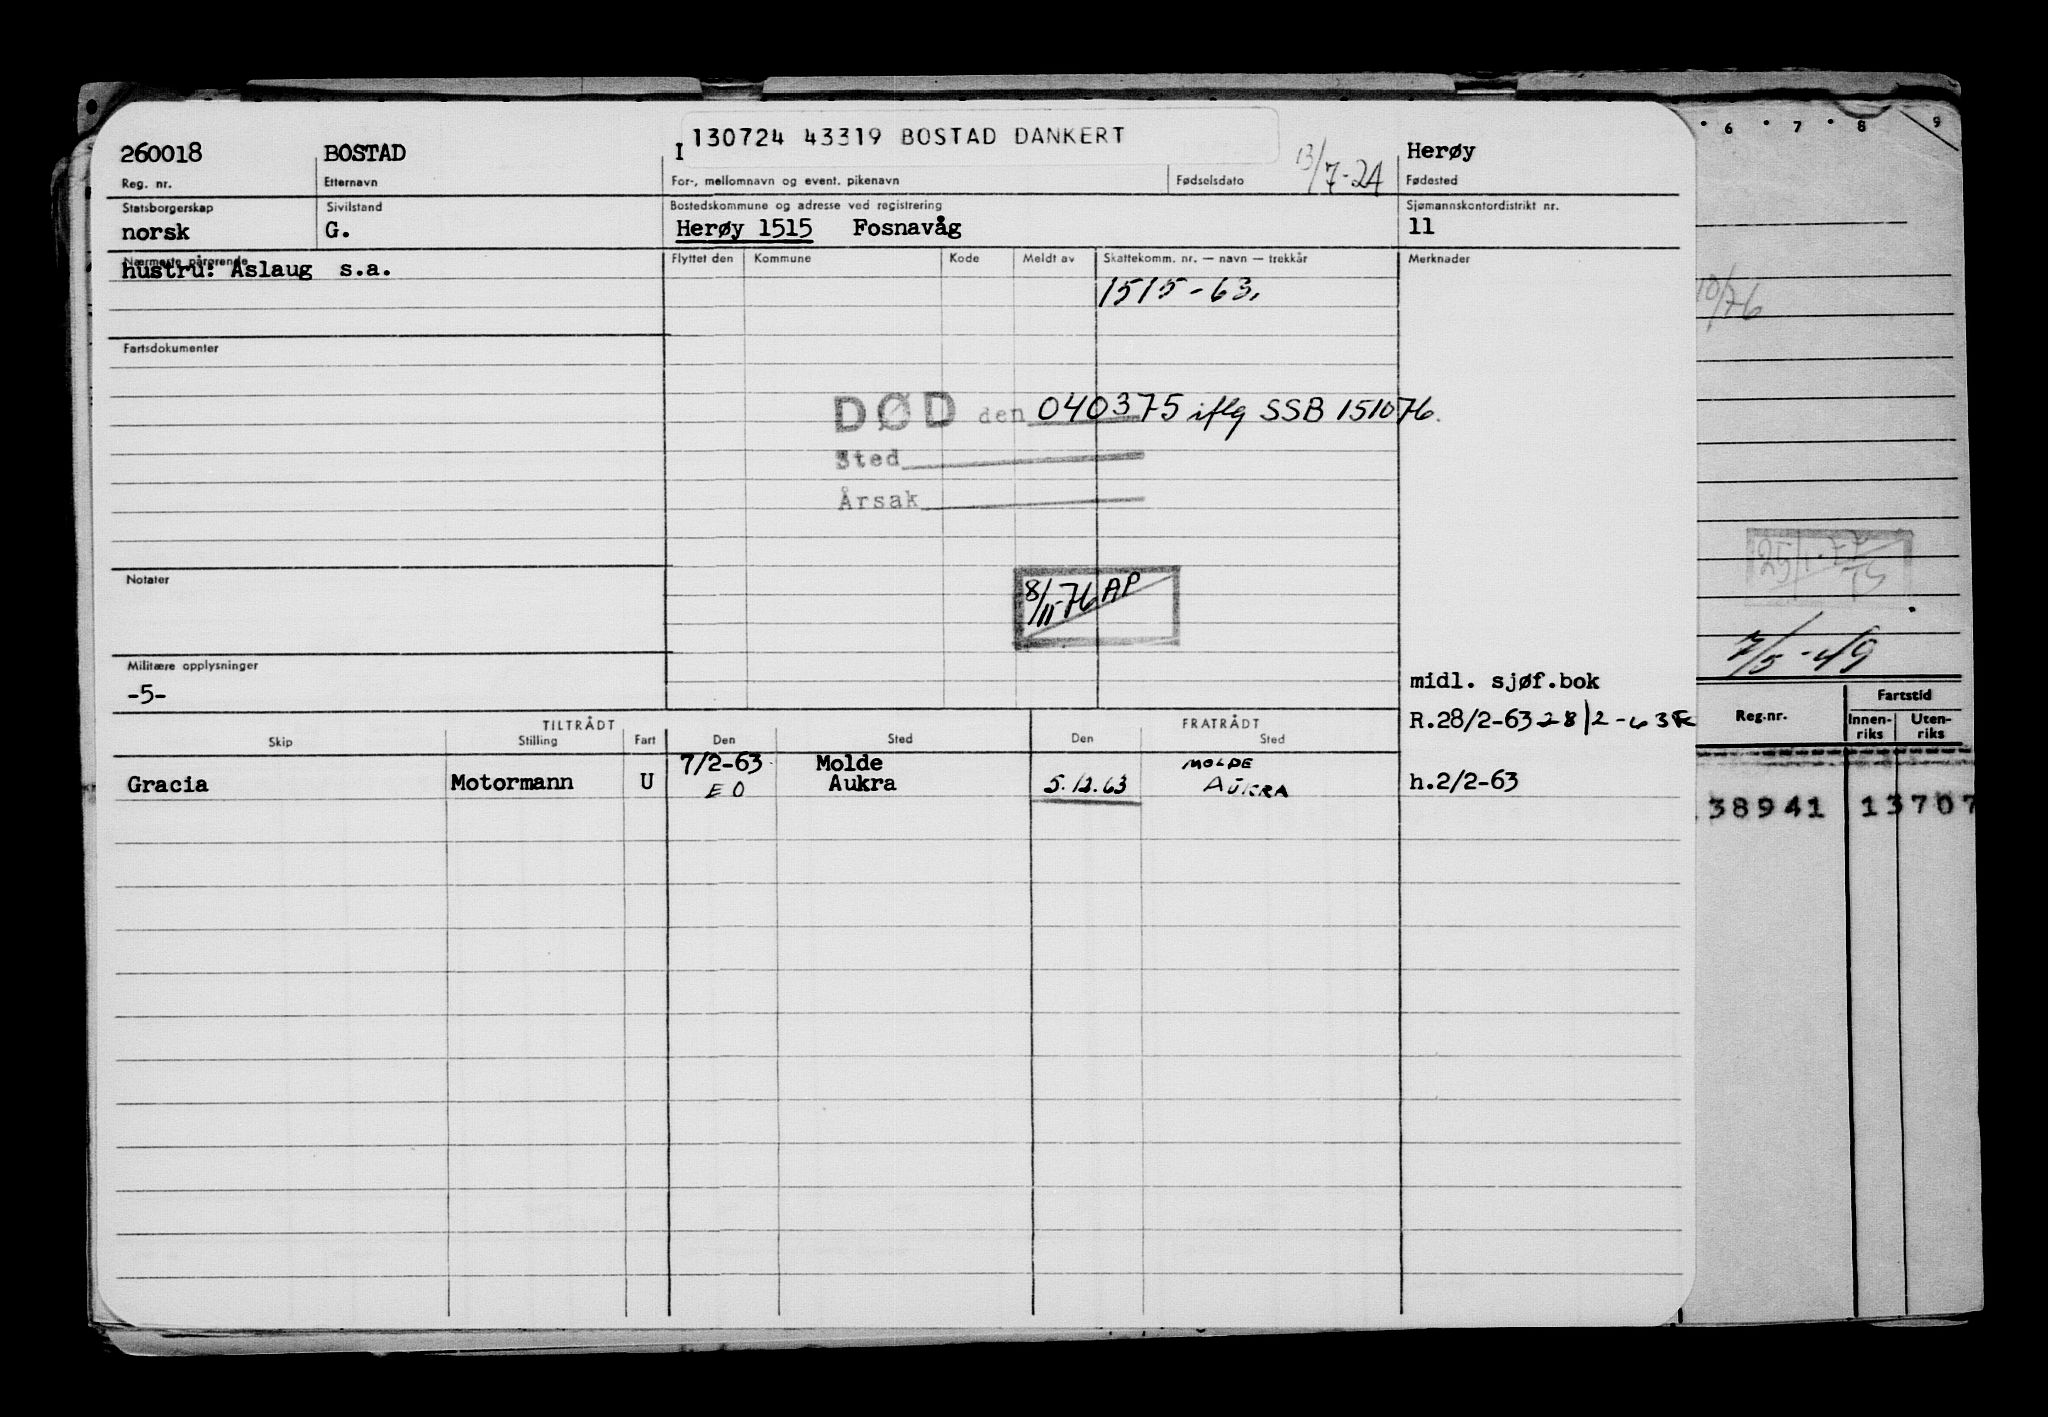 130724 43319 BOSTAD DANKERT
260018 BOSTAD I 13/7-24 Herøy
Reg. nr. Etternavn For-, mellomnavn og event. pikenavn Fødselsdato Fødested
Statsborgerskap Sivilstand Bostedskommune og adresse ved registrering Sjømannskontordistrikt nr.
norsk G. Herøy 1515 Fosnavåg 11
Nærmeste pårørende Flyttet den Kommune Kode Meldt av Skattekomm. nr. — navn — trekkår Merknader
hustru: Aslaug s.a.
1515-63.
Fartsdokumenter
DØD den 040375 iflg SSB 151076.
Sted
Årsak
Notater
8/11-76 AP
Militære opplysninger
-5-
midl. sjøf.bok
R.28/2-63 28/2-63
TILTRÅDT FRATRÅDT
Skip Stilling Fart Den Sted Den Sted
7/2-63 Molde MOLDE
Gracia Motormann U EO Aukra 5.12.63 AUKRA h.2/2-63
6 7 8 9
10/76
25/1-77
7/5-49
Reg.nr. Fartstid
Innen-riks Uten-riks
38941 13707